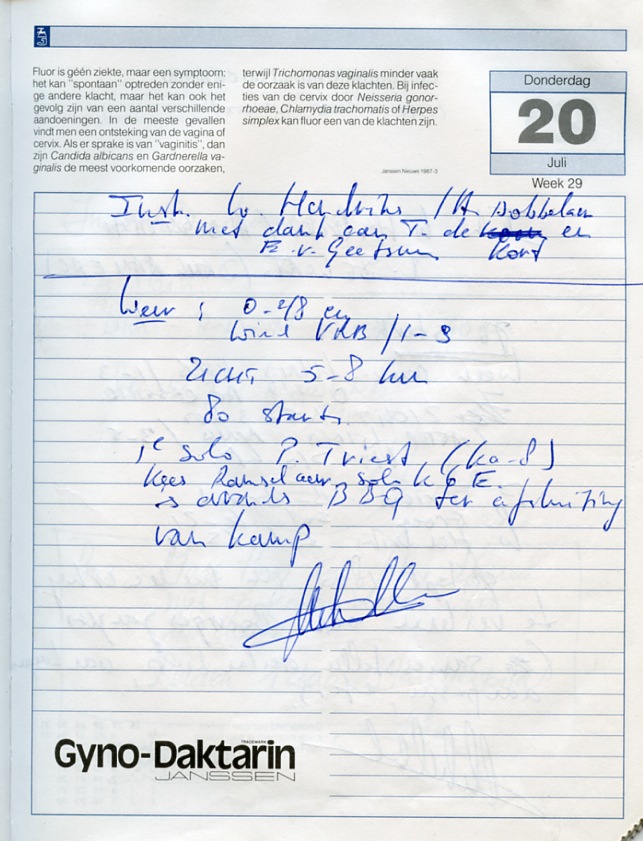 Fluor is géén ziekte, maar een symptoom:
het kan "spontaan" optreden zonder eni-
ge andere klacht, maar het kan ook het
gevolg zijn van een aantal verschillende
aandoeningen. In de meeste gevallen
vindt men een ontsteking van de vagina of
cervix. Als er sprake is van "vaginitis", dan
zijn Candida albicans en Gardnerella va-
ginalis de meest voorkomende oorzaken,
terwijl Trichomonas vaginalis minder vaak
de oorzaak is van deze klachten. Bij infec-
ties van de cervix door Neisseria gonor-
rhoeae, Chlamydia trachomatis of Herpes
simplex kan fluor een van de klachten zijn.
Janssen Nieuws 1987-3
Donderdag
20
Juli
Week 29
Instr. Hendriks / A. Dobbelaer
met dank aan T. de en
F. v. Geetsum Kort
Weer : 0-2/8 en
wind VRB / 1-3
Zicht 5-8 km
80 starts
1e solo P. Triest (Ka-8)
Kees Ramselaar solo K6E.
's avonds BBQ ter afsluiting
van kamp
TRADEMARK
Gyno-Daktarin
JANSSEN